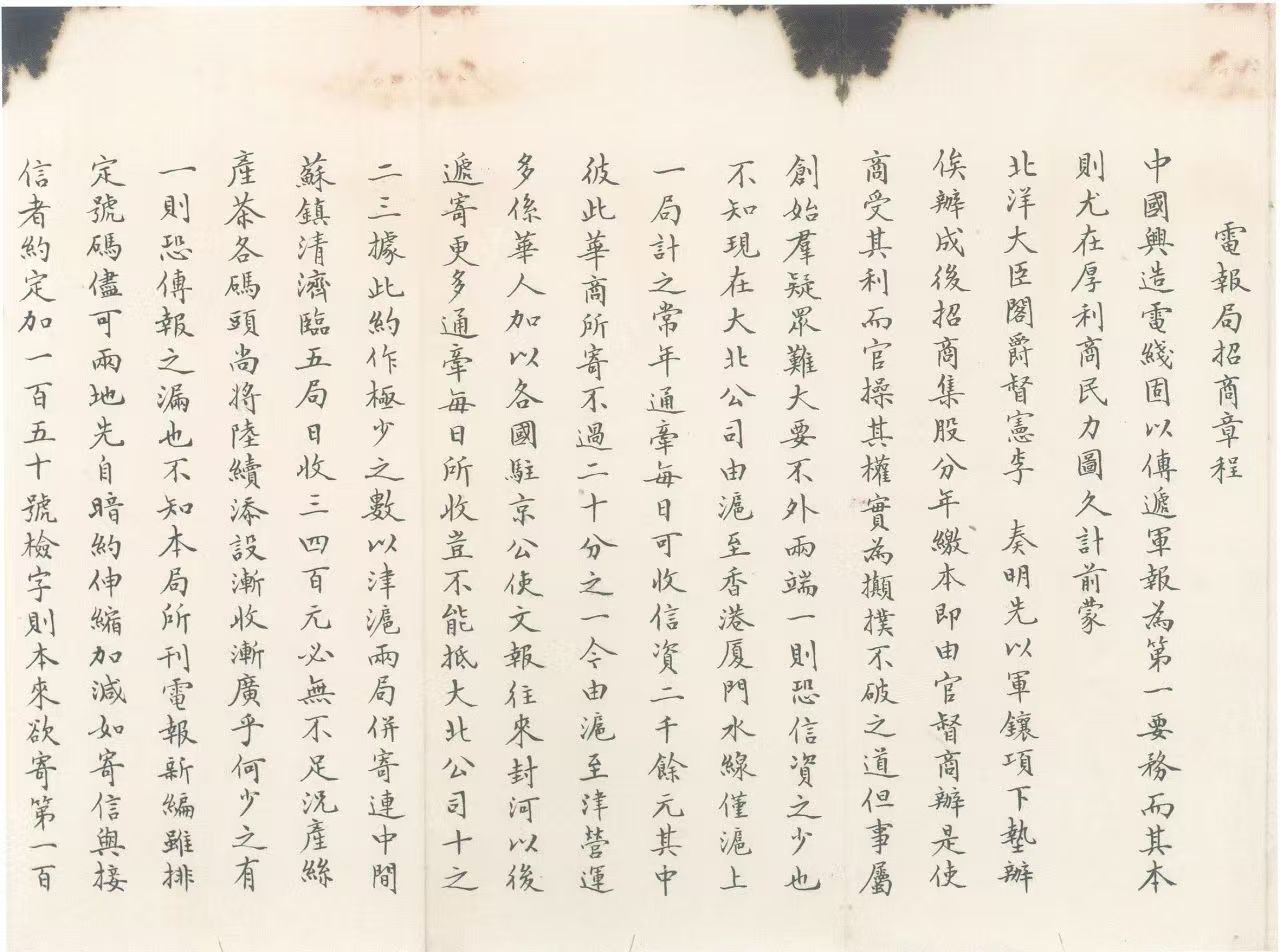 電報局招商章程
中國興造電綫固以傳遞軍報為第一要務而其本
則尤在厚利商民力圖久計前蒙
北洋大臣閣爵督憲李　奏明先以軍饟項下墊辦
俟辦成後招商集股分年繳本即由官督商辦是使
商受其利而官操其權實為顛撲不破之道但事屬
創始羣疑眾難大要不外兩端一則恐信資之少也
不知現在大北公司由滬至香港厦門水線僅滬上
一局計之常年通牽每日可收信資二千餘元其中
彼此華商所寄不過二十分之一今由滬至津營運
多係華人加以各國駐京公使文報往來封河以後
遞寄更多通牽每日所收豈不能抵大北公司十之
二三據此約作極少之數以津滬兩局併寄連中間
蘇鎮清濟臨五局日收三四百元必無不足況產絲
產茶各碼頭尚將陸續添設漸收漸廣乎何少之有
一則恐傳報之漏也不知本局所刊電報新編雖排
定號碼儘可兩地先自暗約伸縮加減如寄信與接
信者約定加一百五十號檢字則本來欲寄第一百